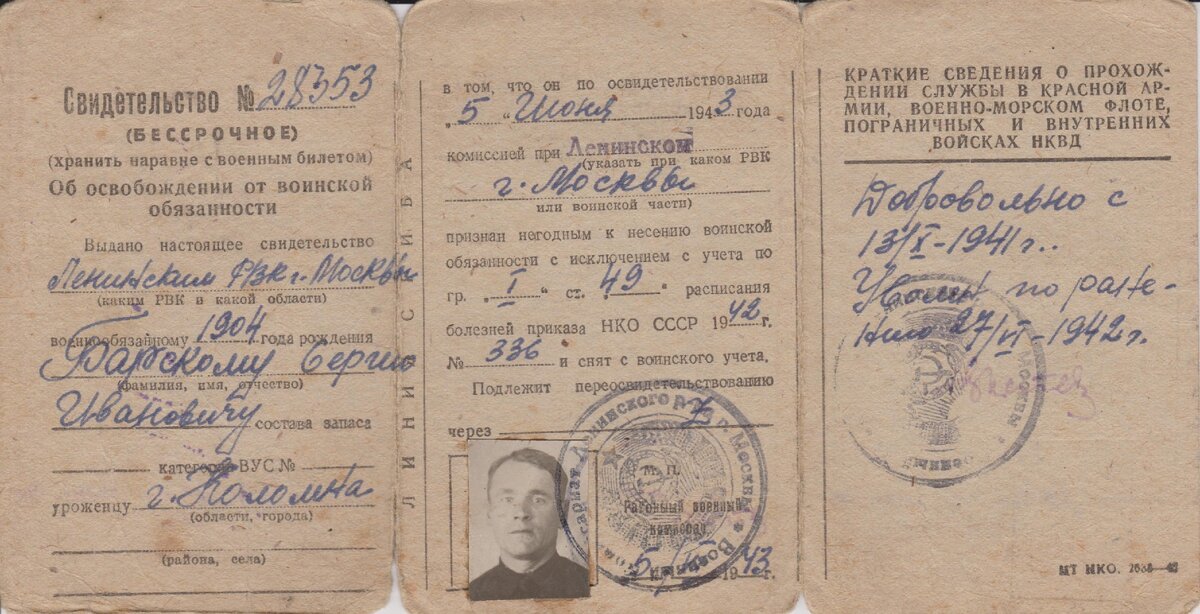 Свидетельство № 28353
(БЕССРОЧНОЕ)
(хранить наравне с военным билетом)
Об освобождении от воинской
обязанности
Выдано настоящее свидетельство
Ленинским РВК г. Москвы
(каким РВК и какой области)
военнообязанному 1904 года рождения
Барскому Сергею
(фамилия, имя, отчество)
Ивановичу состава запаса
категория ВУС №
уроженцу г. Коломна
(области, города)
(района, села)
ЛИНИЯ СГИБА
в том, что он по освидетельствовании
"5" Июня 1943 года
комиссией при Ленинской
(указать при каком РВК
г. Москвы
или воинской части)
признан негодным к несению воинской
обязанности с исключением с учета по
гр. "I" ст. "49" расписания
болезней приказа НКО СССР 1942 г.
№ 336 и снят с воинского учета.
Подлежит переосвидетельствованию
через
М. П.
Районный военный
комиссар
5 1943 г.
Ленинского р-на г. Москвы
КРАТКИЕ СВЕДЕНИЯ О ПРОХОЖ-
ДЕНИИ СЛУЖБЫ В КРАСНОЙ АР-
МИИ, ВОЕННО-МОРСКОМ ФЛОТЕ,
ПОГРАНИЧНЫХ И ВНУТРЕННИХ
ВОЙСКАХ НКВД
Добровольно с
13/X-1941 г..
Уволен по ране-
нию 27/VI-1942 г.
МТ НКО.